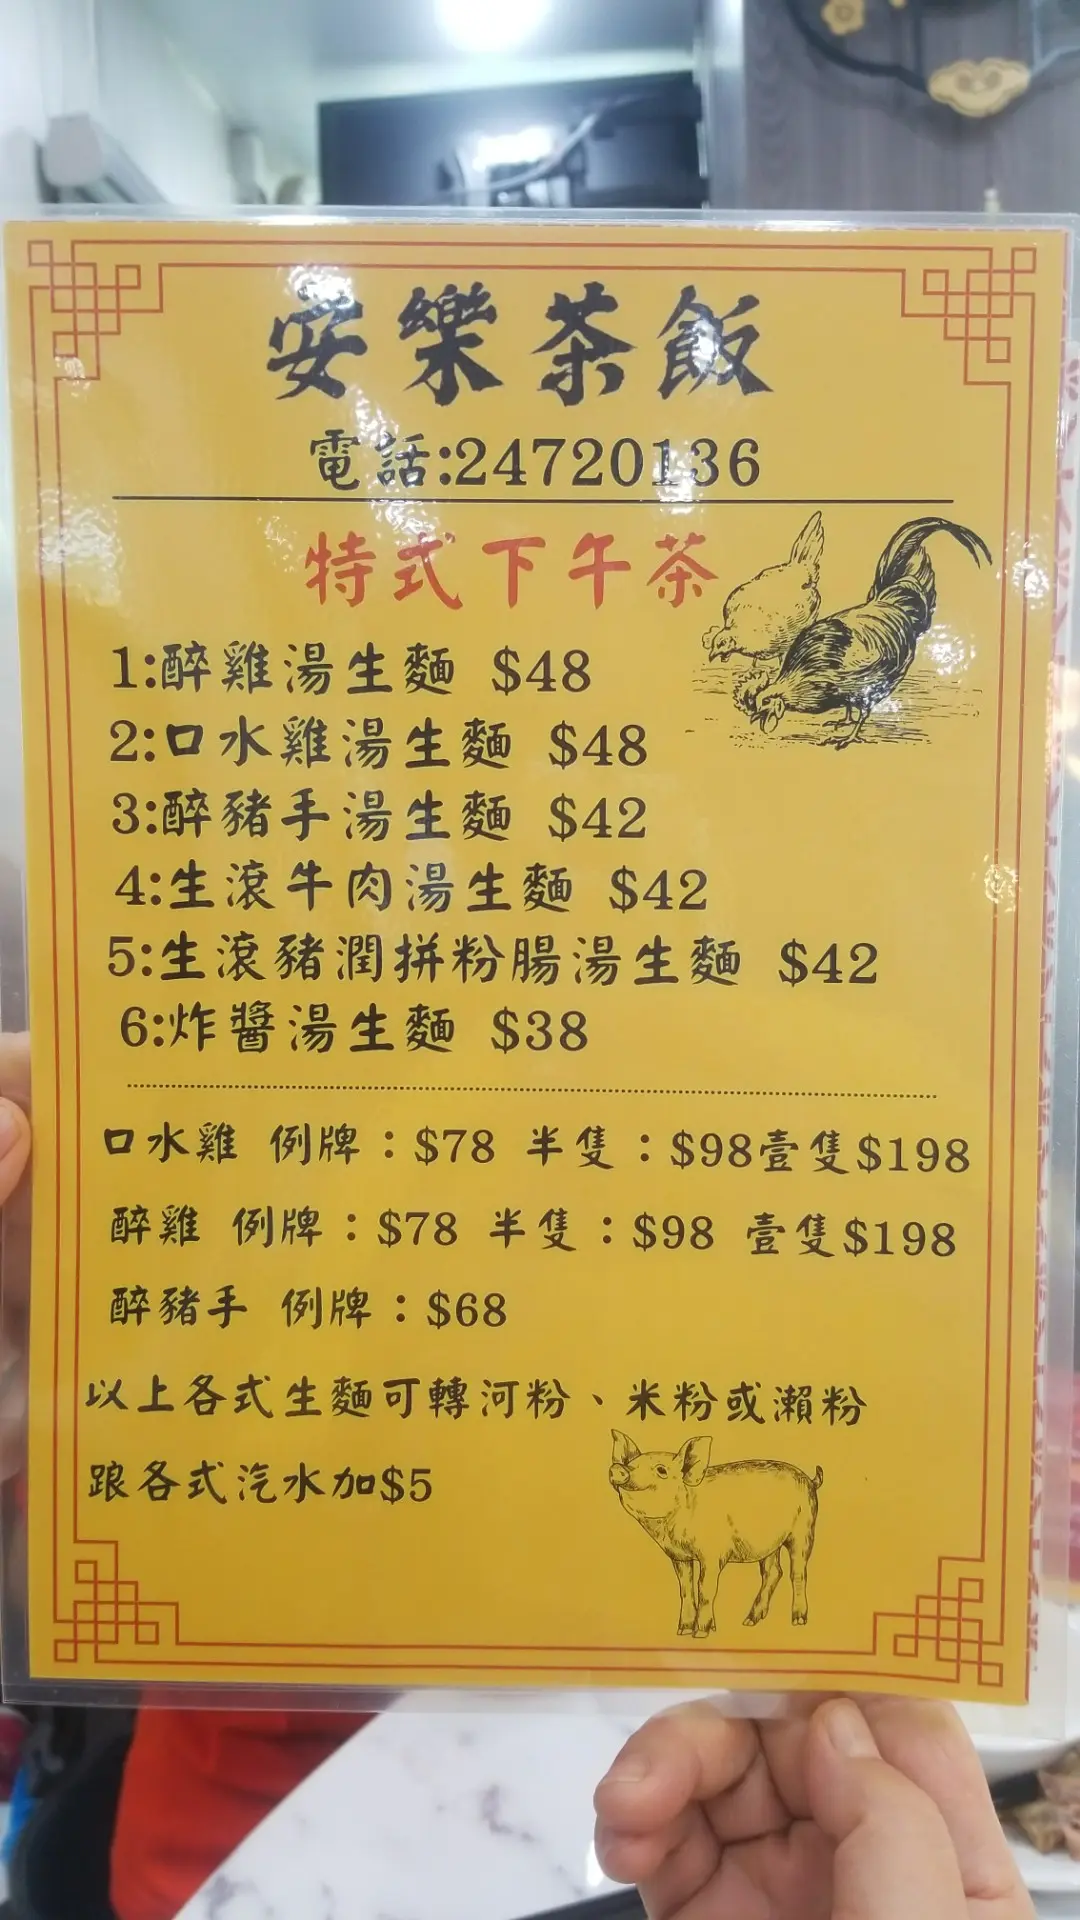 安樂茶飯
電話:24720136
特式下午茶
1:醉雞湯生麵 $48
2:口水雞湯生麵 $48
3:醉豬手湯生麵 $42
4:生滾牛肉湯生麵 $42
5:生滾豬潤拼粉腸湯生麵 $42
6:炸醬湯生麵 $38
口水雞 例牌：$78 半隻：$98壹隻$198
醉雞 例牌：$78 半隻：$98 壹隻$198
醉豬手 例牌：$68
以上各式生麵可轉河粉、米粉或瀨粉
跟各式汽水加$5